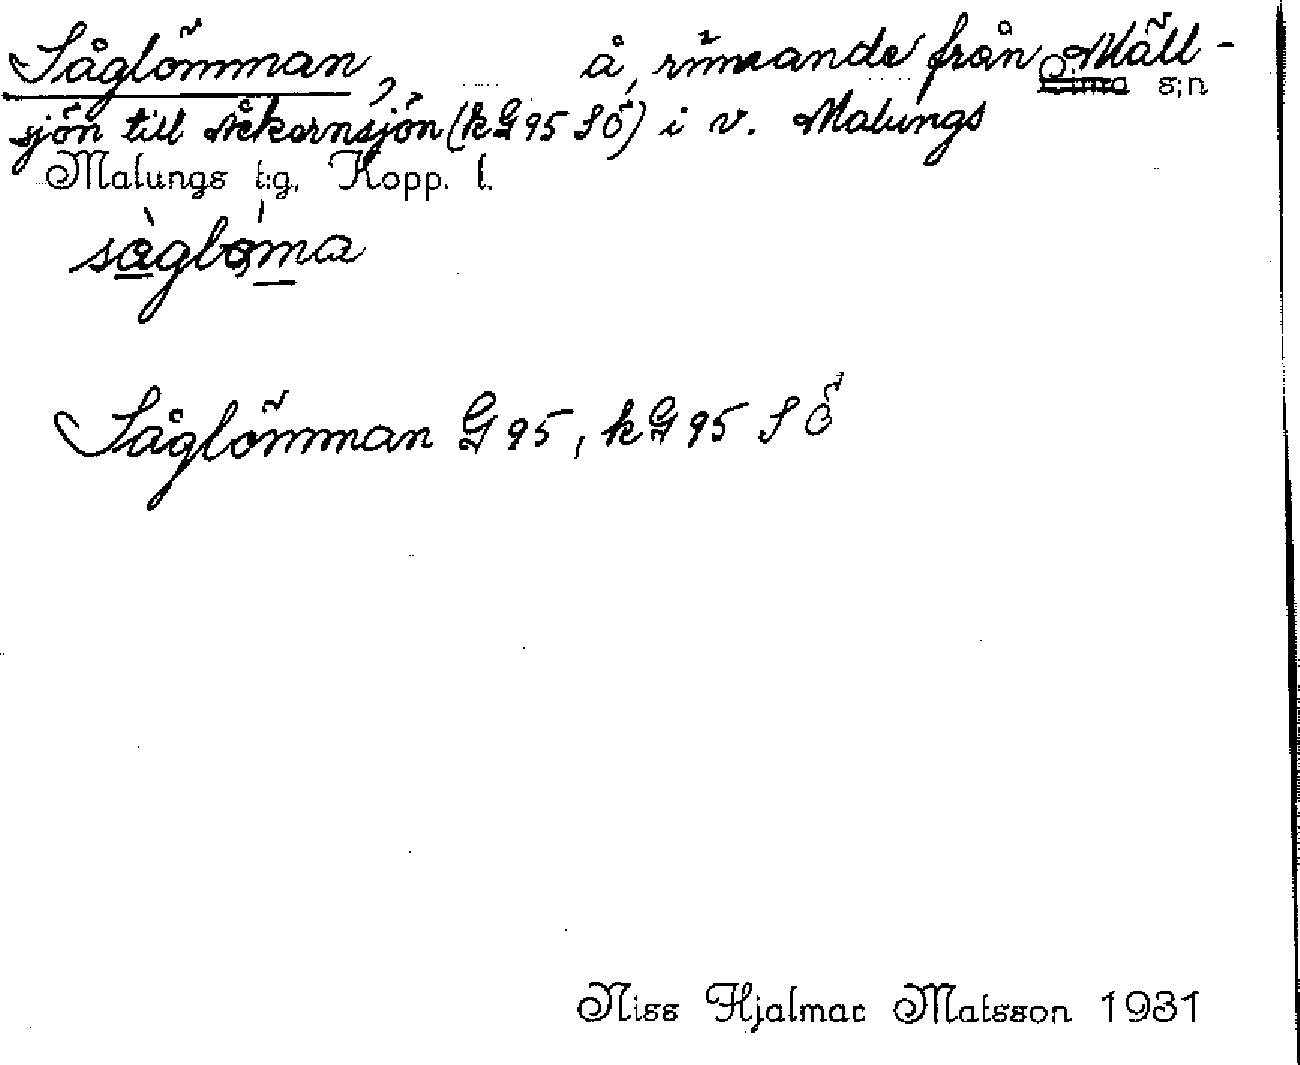 Såglömman, å, rinnande från Mäll-
Lima s:n
sjön till Åkernsjön (kG95 SÖ) i v. Malungs
Malungs t:g, Kopp. l.
såglo̢ma
Såglömman G95, kG95 SÖ
Niss Hjalmar Matsson 1931